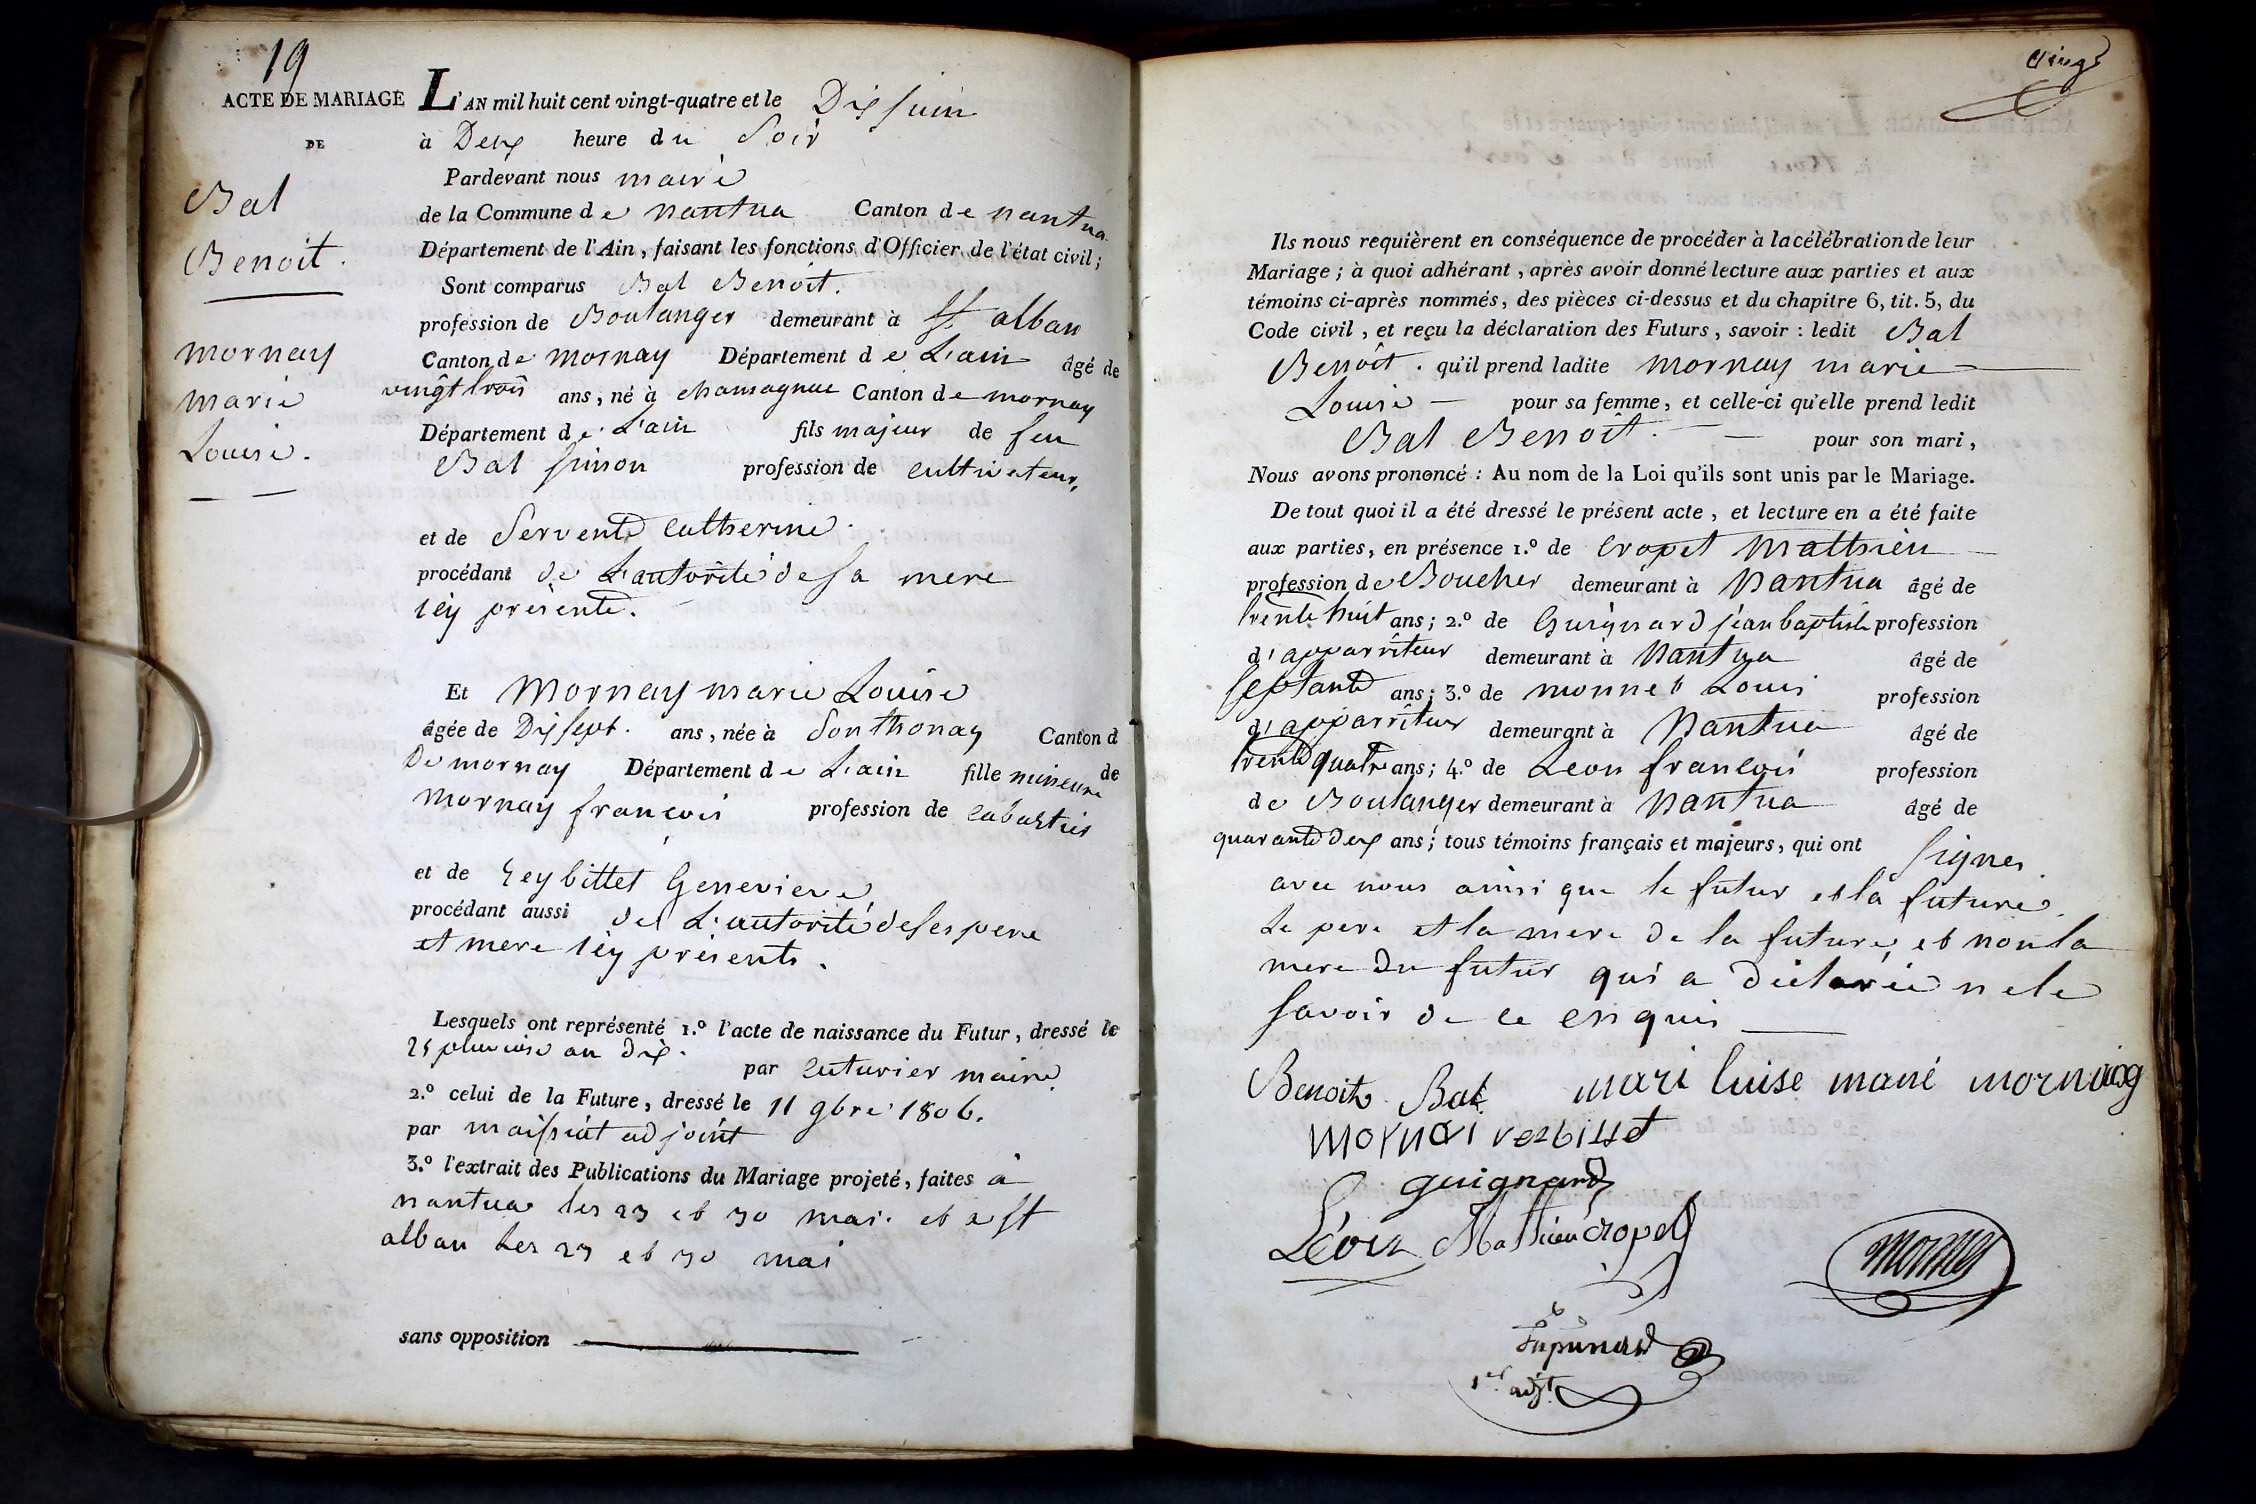 19
ACTE DE MARIAGE
DE
Bal
Benoit.
mornay
marie
Louise.
L'AN mil huit cent vingt-quatre et le Dix juin
à Deux heure du Soir
Pardevant nous maire
de la Commune de nantua Canton de nantua
Département de l'Ain, faisant les fonctions d'Officier de l'état civil;
Sont comparus Bal Benoit.
profession de Boulanger demeurant à St alban
Canton de mornay Département de L'ain âgé de
vingt trois ans, né à Canton de mornay
Département de L'ain fils majeur de feu
Bal simon profession de cultivateur,
et de Servente Catherine.
procédant de L'autorité de sa mere
icy présente.
Et Mornay marie Louise
âgée de Dix sept. ans, née à Sonthonay Canton d
De mornay Département de L'ain fille mineure de
mornay francois profession de
et de Genevieve
procédant aussi de L'autorité de ses pere
et mere icy présents.
Lesquels ont représenté 1.º l'acte de naissance du Futur, dressé le
25 pluviose an dix. par cuturier maire
2.º celui de la Future, dressé le 11 9bre 1806.
par maissiat adjoint
3.º l'extrait des Publications du Mariage projeté, faites à
nantua les 23 et 30 mai. et a St
alban Les 23 et 30 mai
sans opposition
vingt
Ils nous requièrent en conséquence de procéder à la célébration de leur
Mariage; à quoi adhérant, après avoir donné lecture aux parties et aux
témoins ci-après nommés, des pièces ci-dessus et du chapitre 6, tit. 5, du
Code civil, et reçu la déclaration des Futurs, savoir: ledit Bal
Benoît. qu'il prend ladite mornay marie
Louise pour sa femme, et celle-ci qu'elle prend ledit
Bal Benoît. pour son mari,
Nous avons prononcé: Au nom de la Loi qu'ils sont unis par le Mariage.
De tout quoi il a été dressé le présent acte, et lecture en a été faite
aux parties, en présence 1.º de Cropet Mathieu
profession de Boucher demeurant à Nantua âgé de
trente huit ans; 2.º de Guignard jean baptiste profession
d'apparriteur demeurant à Nantua âgé de
septante ans; 3.º de monnet Louis profession
d'apparriteur demeurant à Nantua âgé de
trente quatre ans; 4.º de Leon francois profession
de Boulanger demeurant à Nantua âgé de
quarante deux ans; tous témoins français et majeurs, qui ont signes
avec nous ainsi que le futur et la future,
Le pere et la mere de la future, et non la
mere du futur qui a déclarée ne le
savoir de ce enquis
Benoit Bal mari luise mornay
mornai
guignard
Léon Mathieu cropet
monnet
1er adjt